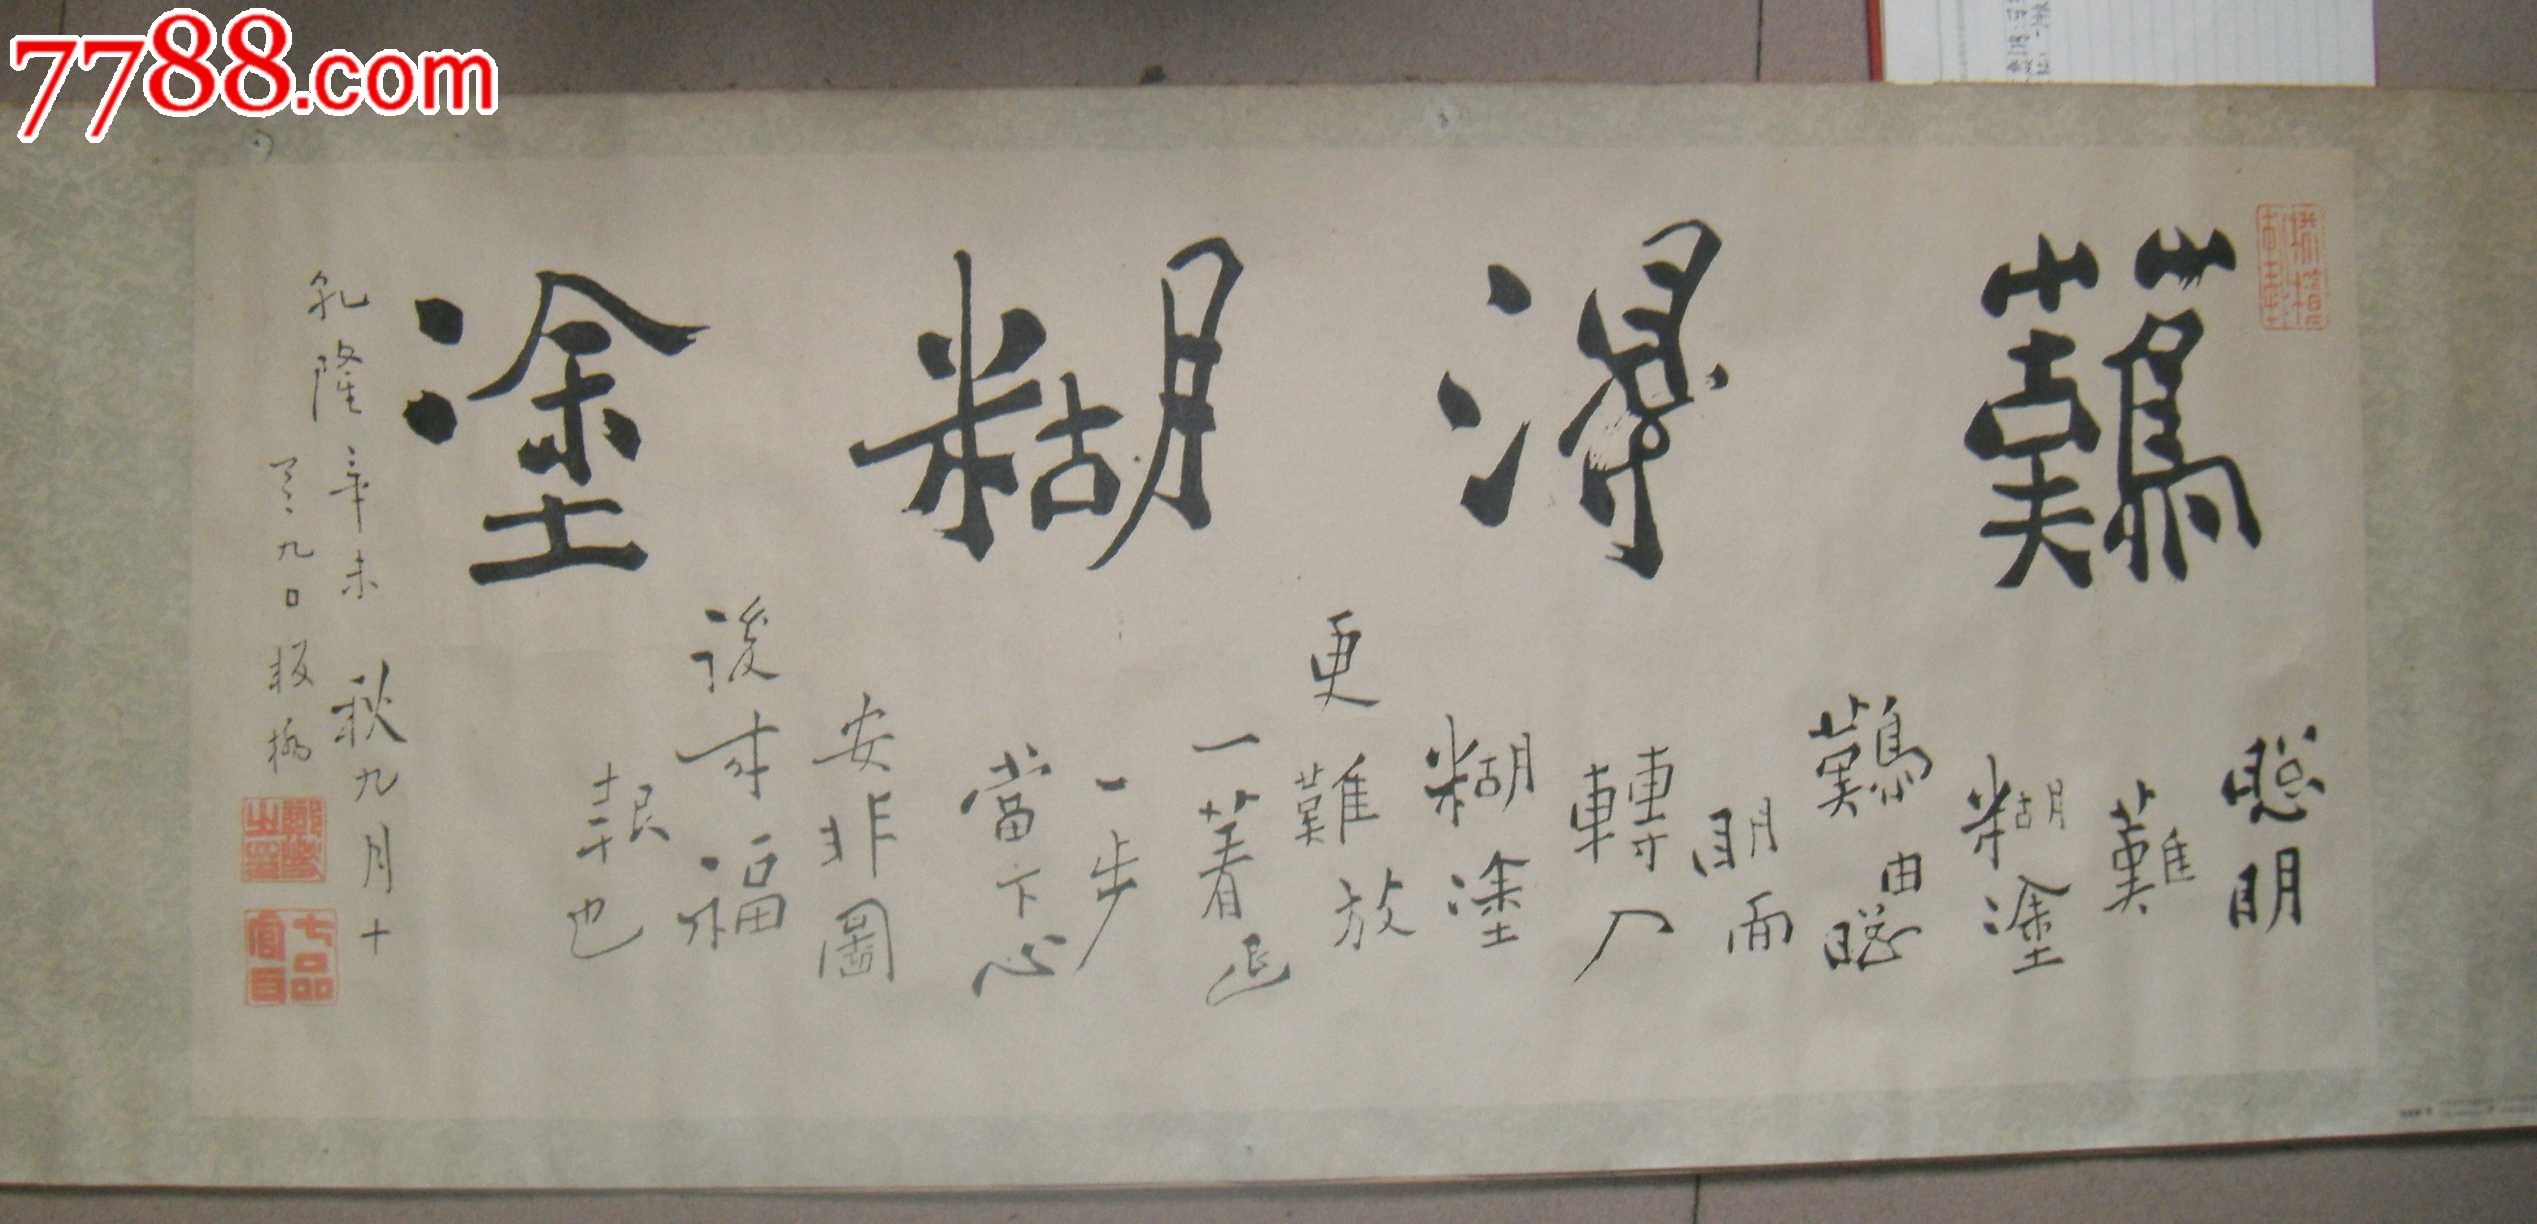 7788.com
難得糊塗
聰明
難
糊塗
難由聰
明而
轉入
糊塗
更難放
一著退
一步
當下心
安非圖
後來福
報也
乾隆辛未秋九月十
九日板橋
鄭燮之印
七品官耳